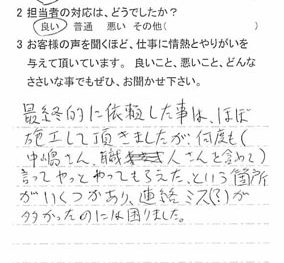 2 担当者の対応は、どうでしたか?
良い 普通 悪い その他(　　　)
3 お客様の声を聞くほど、仕事に情熱とやりがいを
与えて頂いています。 良いこと、悪いこと、どんな
ささいな事でもぜひ、お聞かせ下さい。
最終的に依頼した事は、ほぼ
施工して頂きましたが、何度も(
中嶋さん、職人さんと含めて)
言ってやっとやってもらえた、という箇所
がいくつかあり、連絡ミス(?)が
多かったのには困りました。